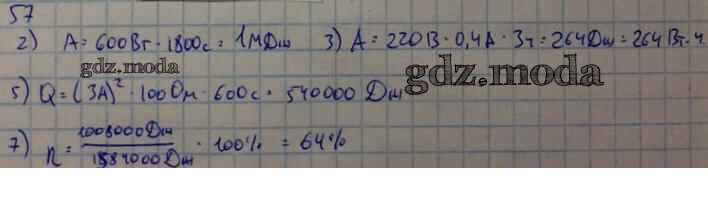 57
2) А = 600Вт · 1800с = 1МДж 3) А = 220В · 0,4А · 3ч = 264Дж = 264Вт·ч
gdz.moda gdz.moda
5) Q = (3А)² · 100Ом · 600с = 540000 Дж
7) n = 1008000Дж / 1584000Дж · 100% = 64%